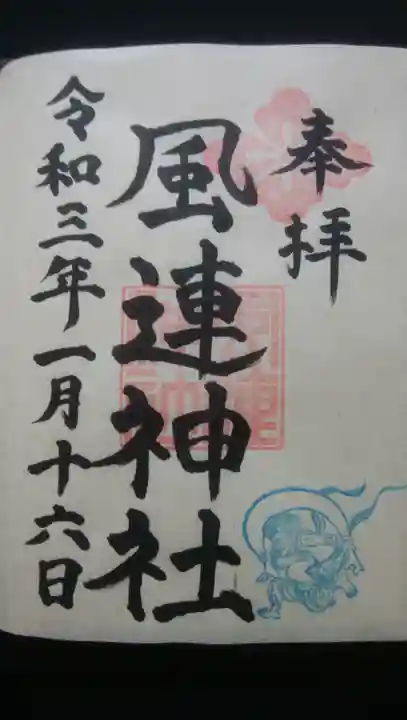 奉拝
風連神社
令和三年一月十六日